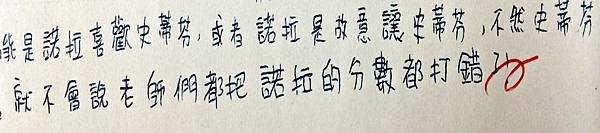 能是諾拉喜歡史蒂芬,或者諾拉是故意讓史蒂芬,不然史蒂芬
就不會說老師們都把諾拉的分數都打錯